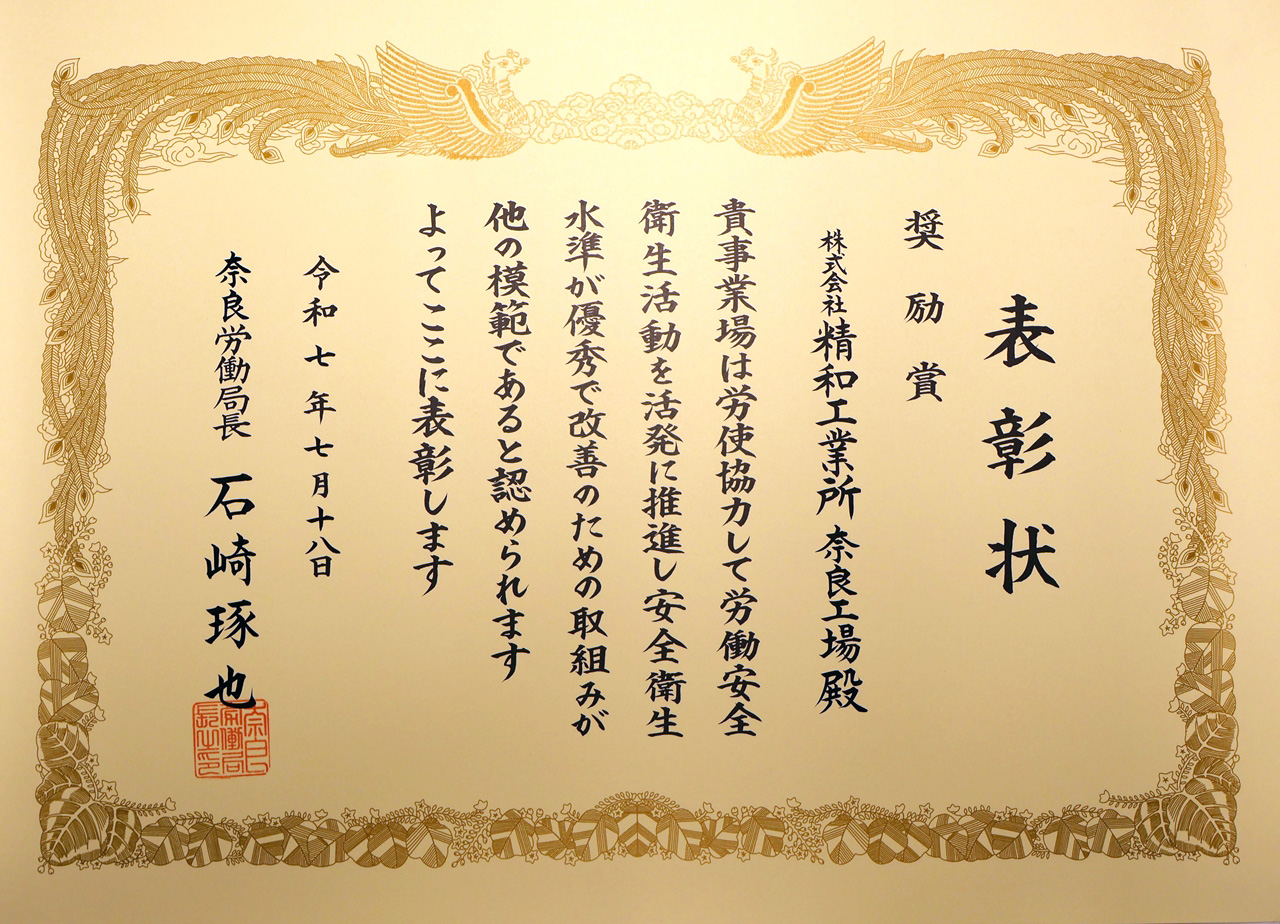 表彰状
奨励賞
株式会社精和工業所 奈良工場殿
貴事業場は労使協力して労働安全
衛生活動を活発に推進し安全衛生
水準が優秀で改善のための取組みが
他の模範であると認められます
よってここに表彰します
令和七年七月十八日
奈良労働局長 石崎琢也
奈良
労働局
長之印